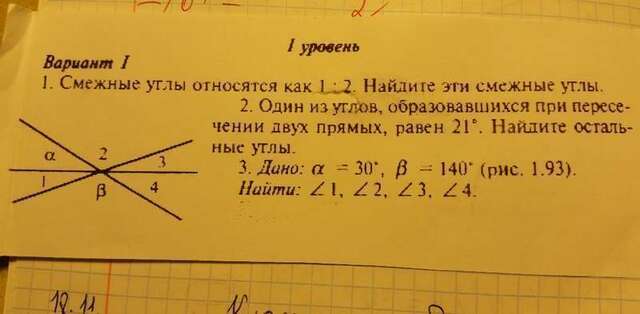 I уровень
Вариант I
1. Смежные углы относятся как 1 : 2. Найдите эти смежные углы.
2. Один из углов, образовавшихся при пересе-
чении двух прямых, равен 21°. Найдите осталь-
ные углы.
3. Дано: α = 30°, β = 140° (рис. 1.93).
Найти: ∠1, ∠2, ∠3, ∠4.
α 2 3
1 β 4
12.11